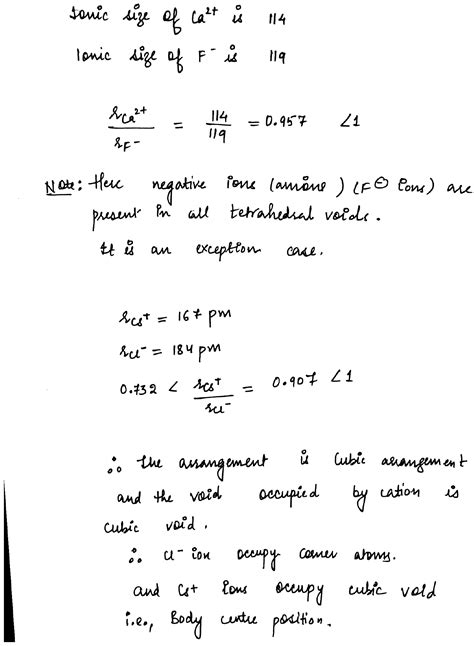 Ionic size of Ca²⁺ is 114
Ionic size of F⁻ is 119
r_Ca²⁺ / r_F⁻ = 114 / 119 = 0.957 <1
Note: Here negative ions (anions) (F⊖ ions) are
present in all tetrahedral voids.
It is an exception case.
r_Cs⁺ = 167 pm
r_Cl⁻ = 184 pm
0.732 < r_Cs⁺ / r_Cl⁻ = 0.907 <1
∴ The arrangement is Cubic arrangement
and the void occupied by cation is
cubic void.
∴ Cl⁻ ion occupy corner atoms.
and Cs+ ions occupy cubic void
i.e., Body centre position.